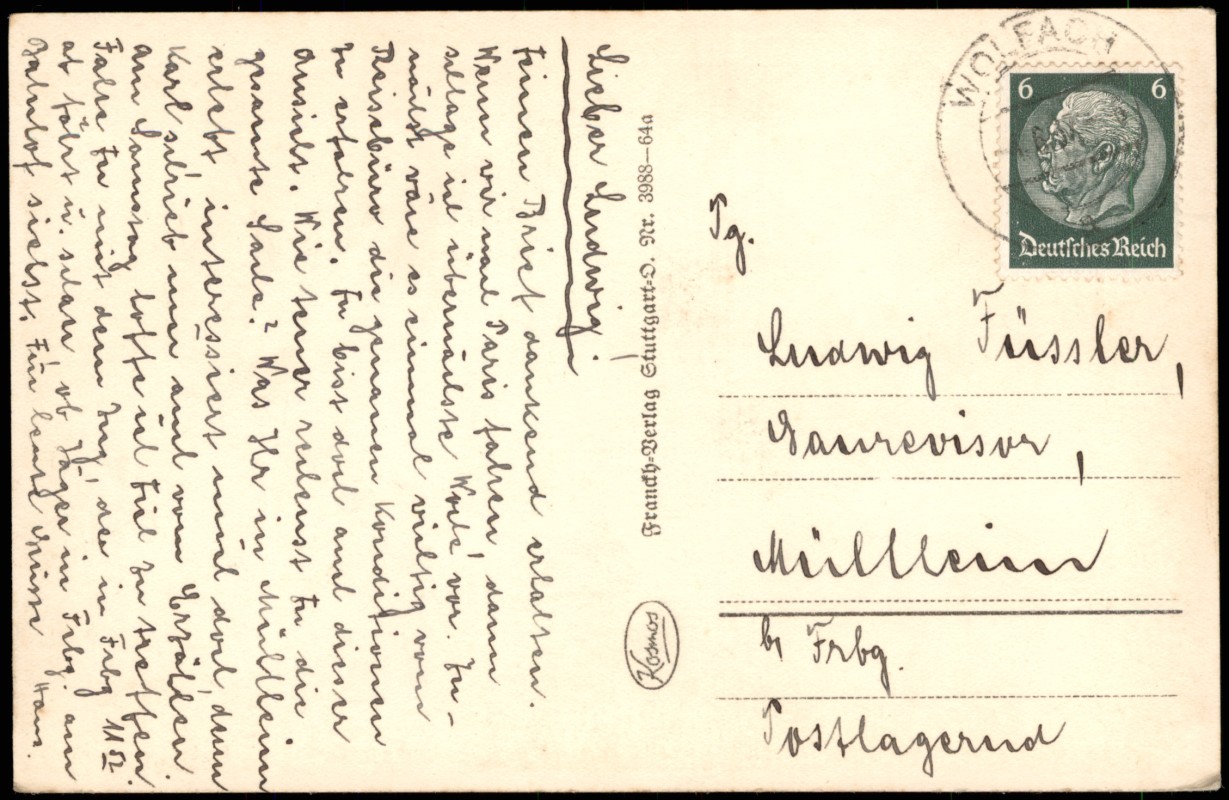 Lieber Ludwig!
Deinen Brief dankend erhalten.
Wenn wir mal Paris fahren, dann
schlage ich übernächste Woche vor. Zu-
nächst wäre es einmal wichtig vom
Reisebüro die genauen Konditionen
zu erfahren. Du bist doch auf dieser
Ansicht. Wie teuer rechnest Du die
gesamte Sache? Was Ihr in Müllheim
erlebt, interessiert mich doch, denn
Karl schrieb mir auch vom
am Samstag hoffe ich Dich zu treffen
Fahre Du mit dem Zug, der in Frbg 11 52
ab fährt u. schau, ob Jäger in Frbg. am
Bahnhof siehst. Für heute Grüsse Hans.
Franckh=Verlag Stuttgart=O. Nr. 3988—64a
Kosmos
WOLFACH
6 6
Deutsches Reich
Pg.
Ludwig Füssler,
Gaurevisor,
Müllheim
b/ Frbg.
Postlagernd